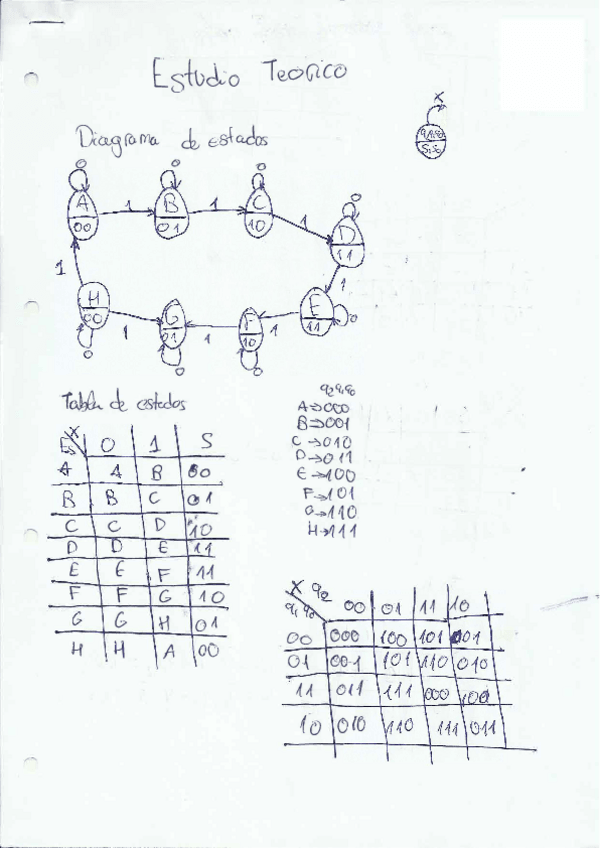 Estudio Teorico
X
q2q1q0
S1S0
Diagrama de estados
0 0 0 0
A 1 B 1 C 1 D
00 01 10 11
1 1
H 1 G 1 F 1 E 0
00 01 10 11
0 0 0
Tabla de estados
q2q1q0
A→000
B→001
C→010
D→011
E→100
F→101
G→110
H→111
E X 0 1 S
A A B 00
B B C 01
C C D 10
D D E 11
E E F 11
F F G 10
G G H 01
H H A 00
X q2
q1 q0 00 01 11 10
00 000 100 101 001
01 001 101 110 010
11 011 111 000 100
10 010 110 111 011